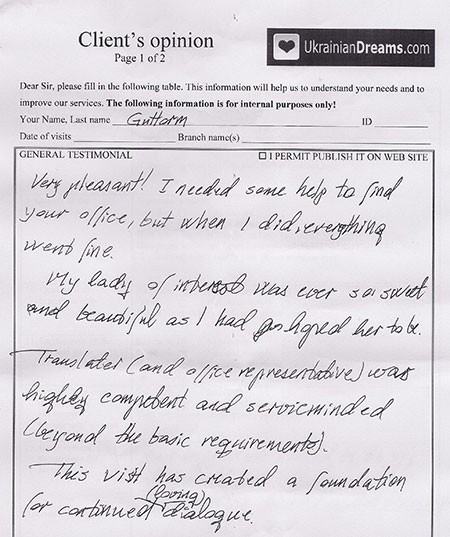 Client's opinion
Page 1 of 2
UkrainianDreams.com
Dear Sir, please fill in the following table. This information will help us to understand your needs and to
improve our services. The following information is for internal purposes only!
Your Name, Last name Guttorm ID
Date of visits Branch name(s)
GENERAL TESTIMONIAL ☐ I PERMIT PUBLISH IT ON WEB SITE
Very pleasant! I needed some help to find
your office, but when I did, everything
went fine.
My lady of interest was ever so sweet
and beautiful as I had her to be.
Translater (and office representative) was
highly competent and servicminded
(beyond the basic requirements).
This visit has created a foundation
for continued (loving) dialogue.